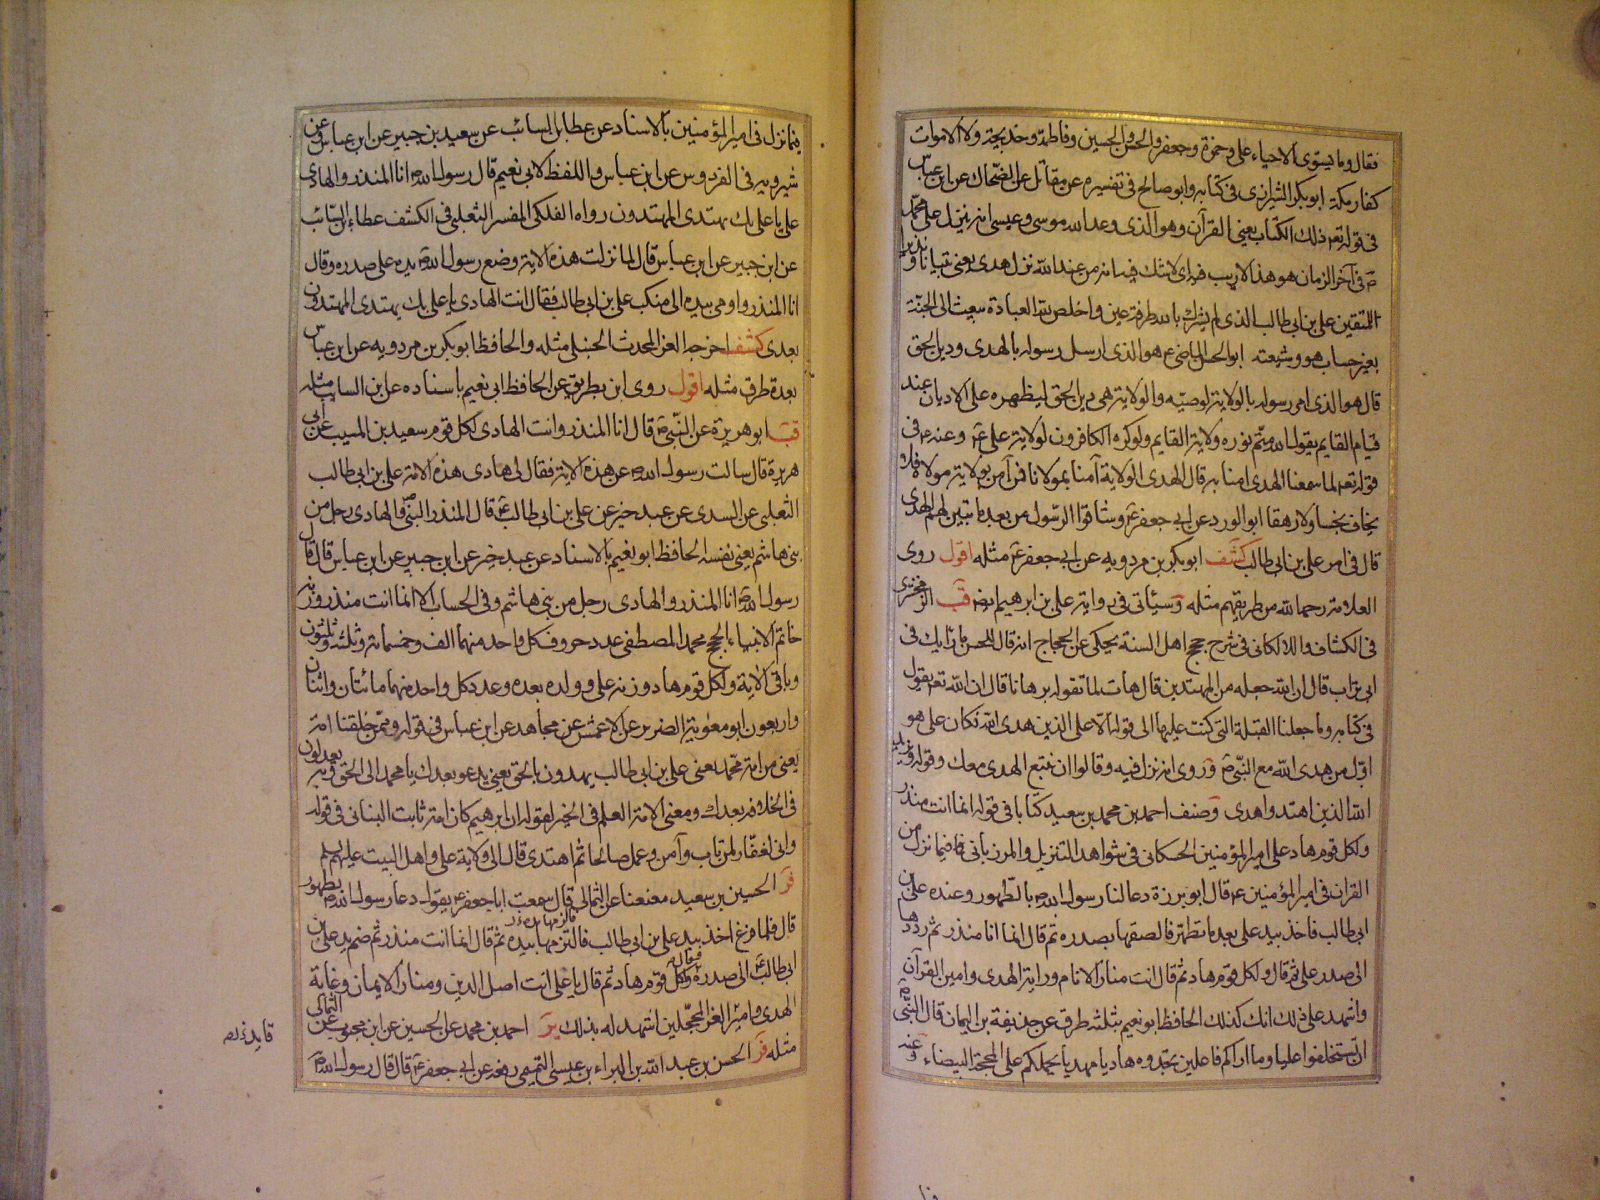 فقال وما يستوى الاحياء على وحمزة وجعفر والحسن والحسين وفاطمة وخديجة ولا الاموات
كفار مكة ابو بكر الشيرازى فى كتابه وابو صالح فى تفسيره عن مقاتل عن الضحاك عن ابن عباس
فى قوله تعه ذلك الكتاب يعنى القرآن وهو الذى وعد الله موسى وعيسى انه ينزل على محمد
ص فى آخر الزمان هو هذا لا ريب فيه اى لا شك فيه انه من عند الله نزل هدى يعنى تبيانا ونذيرا
للمتقين على بن ابى طالب الذى لم يشرك بالله طرفة عين واخلص لله العبادة يبعث الى الجنة
بغير حساب هو وشيعته ابو الحسن الماضى ع هو الذى ارسل رسوله بالهدى ودين الحق
قال هو الذى امر رسوله بالولاية لوصيه والولاية هى دين الحق ليظهره على الاديان عند
قيام القايم يقول الله متم نوره ولاية القايم ولو كره الكافرون لولاية على ع وعنه ع فى
قوله تعه لما سمعنا الهدى امنا به قال الهدى الولاية آمنا بمولانا فمن آمن بولاية مولاه فلا
يخاف بخسا ولا رهقا ابو الورد عن ابى جعفر ع وشاقوا الرسول من بعد ما تبين لهم الهدى
قال فى امر على بن ابى طالب كشف ابو بكر بن مردويه عن ابى جعفر ع مثله اقول روى
العلامة رحمه الله من طريقهم مثله وسيأتى فى رواية على بن ابرهيم ايضه قب الزمخشرى
فى الكشاف واللالكانى فى شرح حجج اهل السنة يحكى عن الحجاج انه قال للحسن ما رايك فى
ابى تراب قال ان الله جعله من المهتدين قال هات لما تقوله برهانا قال ان الله تعه يقول
فى كتابه وما جعلنا القبلة التى كنت عليها الى قوله الا على الذين هدى الله فكان على هو
اول من هدى الله مع النبى ص وروى انه نزل فيه وقالوا ان نتبع الهدى معك وقوله ويزيد
الله الذين اهتدوا هدى وصنف احمد بن محمد بن سعيد كتابا فى قوله انما انت منذر
ولكل قوم هاد على امير المؤمنين الحسكانى فى شواهد التنزيل والمرزبانى فيما نزل من
القران فى امير المؤمنين ع قال ابو برزة دعا لنا رسول الله ص بالطهور وعنده على بن
ابى طالب فاخذ بيد على بعد ما تطهر فالصقها بصدره ثم قال انما انا منذر ثم ردها
الى صدر على ثم قال ولكل قوم هاد ثم قال انت منار الانام وراية الهدى وامين القرآن
واشهد على ذلك انك كذلك الحافظ ابو نعيم بثلثه طرق عن حذيفة بن اليمان قال النبى ص
ان تستخلفوا عليا وما اراكم فاعلين تجدوه هاديا مهديا يحملكم على المحجة البيضاء وعنه
فيما نزل فى امير المؤمنين بالاسناد عن عطا بن السائب عن سعيد بن جبير عن ابن عباس وعن
شيرويه فى الفردوس عن ابن عباس واللفظ لابى نعيم قال رسول الله ص انا المنذر والهادى
على يا على بك يهتدى المهتدون رواه الفلكى المفسر الثعلبى فى الكشف عطاء بن السائب
عن ابن جبير عن ابن عباس قال لما نزلت هذه الاية وضع رسول الله ص يده على صدره وقال
انا المنذر واومى بيده الى منكب على بن ابى طالب فقال انت الهادى يا على بك يهتدى المهتدون
بعدى كشف اخرجه العز المحدث الحنبلى مثله والحافظ ابو بكر بن مردويه عن ابن عباس
بعدة طرق مثله اقول روى ابن بطريق عن الحافظ ابى نعيم باسناده عن ابن السايب مثله
قب ابو هريرة عن النبى ص قال انا المنذر وانت الهادى لكل قوم سعيد بن المسيب عن ابى
هريرة قال سالت رسول الله ص عن هذه الاية فقال لى هادى هذه الامة على بن ابى طالب
الثعلبى عن السدى عن عبد خير عن على بن ابى طالب ع قال المنذر النبى ص والهادى رجل من
بنى هاشم يعنى نفسه الحافظ ابو نعيم بالاسناد عن عبد خير عن ابن جبير عن ابن عباس قال قال
رسول الله ص انا المنذر والهادى رجل من بنى هاشم وفى الحساب الا انما انت منذر وزنه
خاتم الانبياء الحجج محمد المصطفى عدد حروف كل واحد منهما الف وخمسمائة وثلثه وثلثون
وباقى الاية ولكل قوم هاد وزنه على وولده بعده وعدد كل واحد منهما مائتان واثنان
واربعون ابو معوية الضرير عن الاعمش عن مجاهد عن ابن عباس فى قوله وممن خلقنا امة
يعنى من امة محمد يعنى على بن ابى طالب يهدون بالحق يعنى يدعو بعدك يا محمد الى الحق وبه يعدلون
فى الخلافة بعدك ومعنى الامة العلم فى الخير لقوله ان ابرهيم كان امة ثابت البنانى فى قوله
وانى لغفار لمن تاب وآمن وعمل صالحا ثم اهتدى قال الى ولاية على واهل البيت عليهم السلم
فر الحسين بن سعيد معنعنا عن الثمالى قال سمعت ابا جعفر ع يقول دعا رسول الله ص بطهور
قال فلما فرغ اخذ بيد على بن ابى طالب فالتزمها بيده ثم قال انما انت منذر ثم ضم يد على بن
ابى طالب ع الى صدره وقال ولكل قوم هاد ثم قال يا على انت اصل الدين ومنار الايمان وغاية
الهدى وامير الغر المحجلين اشهد له بذلك ير احمد بن محمد عن الحسين عن ابن محبوب عن الثمالى
مثله فر الحسن بن عبد الله بن البراء بن عيسى التميمى رفعه عن ابى جعفر ع قال قال رسول الله ص